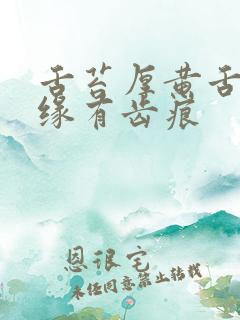 舌苔厚黄舌
缘有齿痕
恩很宅
未经同意禁止转载